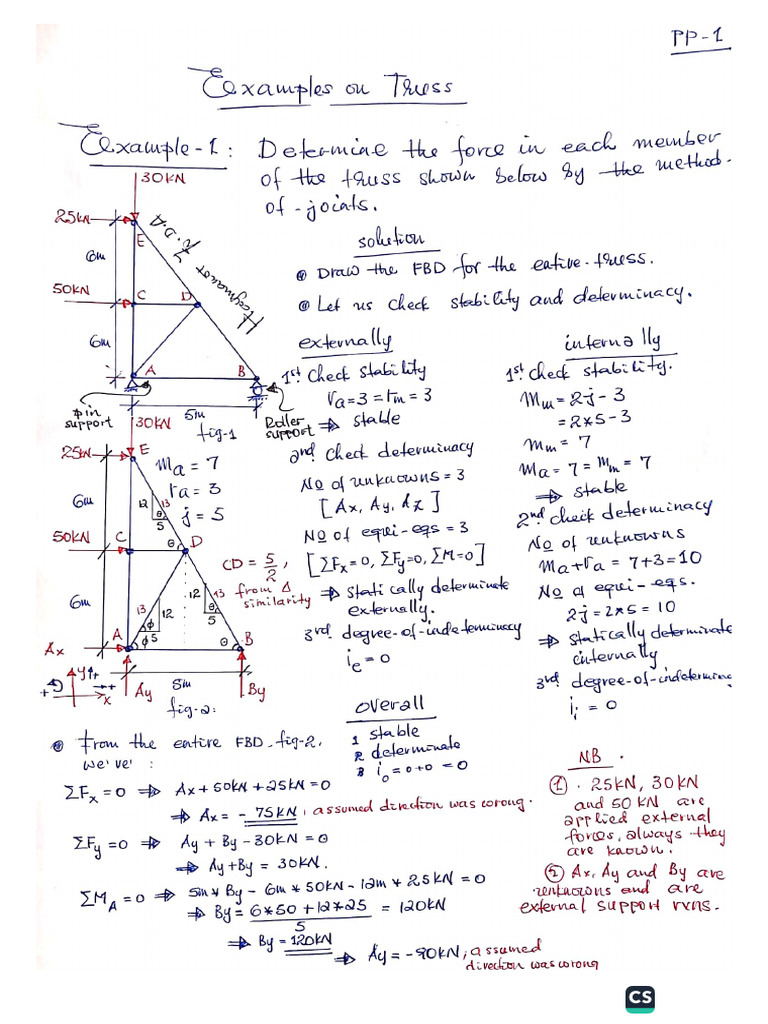 PP-1
Examples on Truss
Example-1: Determine the force in each member
of the truss shown below by the method-
of-joints.
30KN
25KN
E
6m
50KN
C
D
6m
A
B
pin
support
5m
Roller
support
fig-1
Haymanot Z.D.A
solution
Draw the FBD for the entire-truss.
Let us check stability and determinacy.
externally
1st Check stability
ra=3=rm=3
⇒ stable
2nd Check determinacy
No of unknowns = 3
[Ax, Ay, Az]
No of equi-eqs = 3
[ΣFx=0, ΣFy=0, ΣM=0]
⇒ statically determinate
externally.
3rd degree-of-indeterminacy
ie=0
internally
1st check stability.
Mm = 2j - 3
= 2*5-3
Mm = 7
Ma = 7 = Mm = 7
⇒ stable
2nd check determinacy
No of unknowns
Ma+ra = 7+3=10
No of equi-eqs.
2j=2*5=10
⇒ statically determinate
internally
3rd degree-of-indetermina
ii = 0
30KN
25KN
E
Ma = 7
ra = 3
j = 5
6m
12
13
θ
5
50KN
C
θ
D
CD = 5/2,
from Δ
similarity
6m
13
12
φ
5
12
13
θ
5
A
φ
θ
B
Ax
Ay
5m
By
y
x
fig-2:
overall
1 stable
2 determinate
3 io=0+0=0
From the entire FBD fig-2,
we've:
ΣFx=0 ⇒ Ax+50KN+25KN=0
⇒ Ax= -75KN, assumed direction was wrong.
ΣFy=0 ⇒ Ay + By-30KN=0
⇒ Ay+By = 30KN.
ΣMA=0 ⇒ 5m*By - 6m*50KN-12m*25KN=0
⇒ By= 6*50+12*25/5 = 120KN
⇒ By=120KN
⇒ Ay=-90KN, assumed
direction was wrong
NB.
① 25KN, 30KN
and 50 KN are
applied external
forces, always they
are known.
② Ax, Ay and By are
unknowns and are
external support rxns.
CS